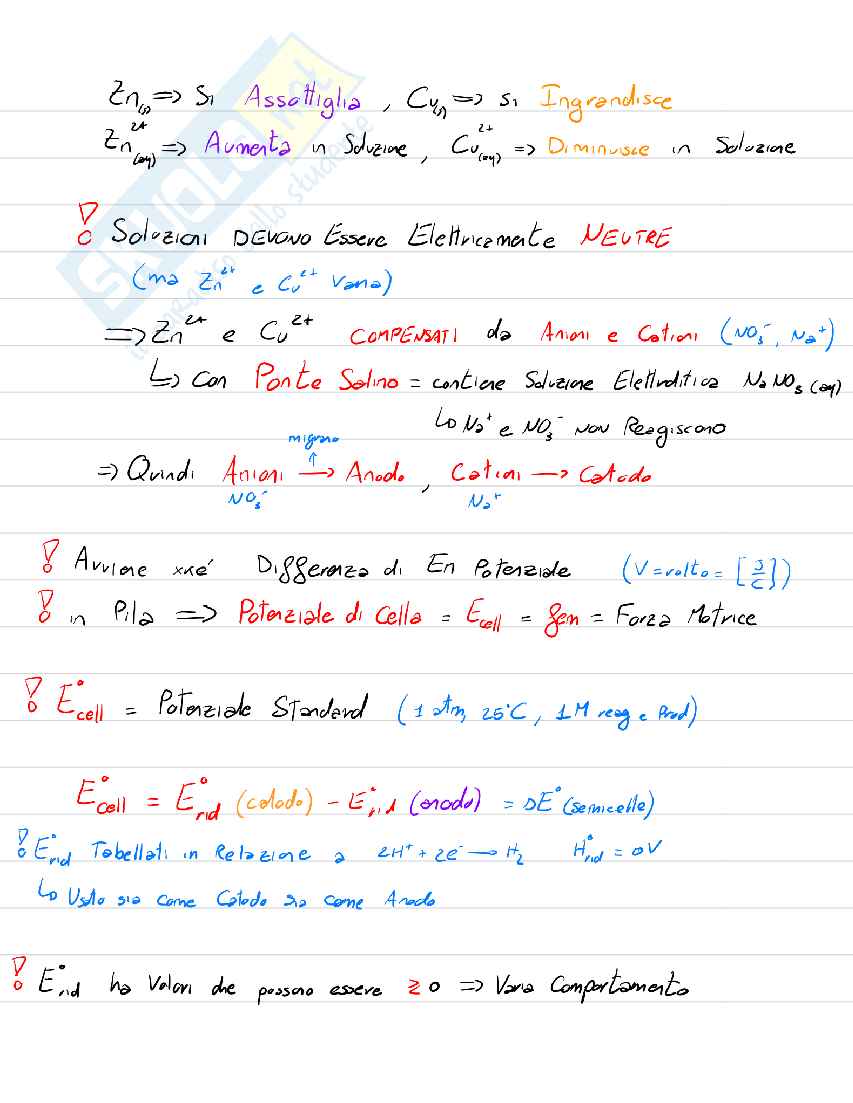 Zn(s) => Si Assottiglia , Cu(s) => si Ingrandisce
Zn²⁺(aq) => Aumenta in Soluzione , Cu²⁺(aq) => Diminuisce in Soluzione
! Soluzioni DEVONO Essere Elettricamente NEUTRE
(ma Zn²⁺ e Cu²⁺ Varia)
=> Zn²⁺ e Cu²⁺ COMPENSATI da Anioni e Cationi (NO₃⁻, Na⁺)
↳ Con Ponte Salino = contiene Soluzione Elettrolitica NaNO₃(aq)
↳ Na⁺ e NO₃⁻ NON Reagiscono
migrano
↑
=> Quindi Anioni → Anodo , Cationi → Catodo
NO₃⁻ Na⁺
! Avviene xké Differenza di En Potenziale (V = volto = [J/C])
! in Pila => Potenziale di Cella = Ecell = fem = Forza Motrice
! E°cell = Potenziale Standard (1 atm, 25°C, 1M reag e Prod)
E°cell = E°rid (catodo) - E°rid (anodo) = ΔE° (semicelle)
! E°rid Tabellati in Relazione a 2H⁺ + 2e⁻ → H₂ H°rid = 0V
↳ Usato sia come Catodo sia come Anodo
! E°rid ha Valori che possono essere ≷ 0 => Varia Comportamento
SKUOLA.net